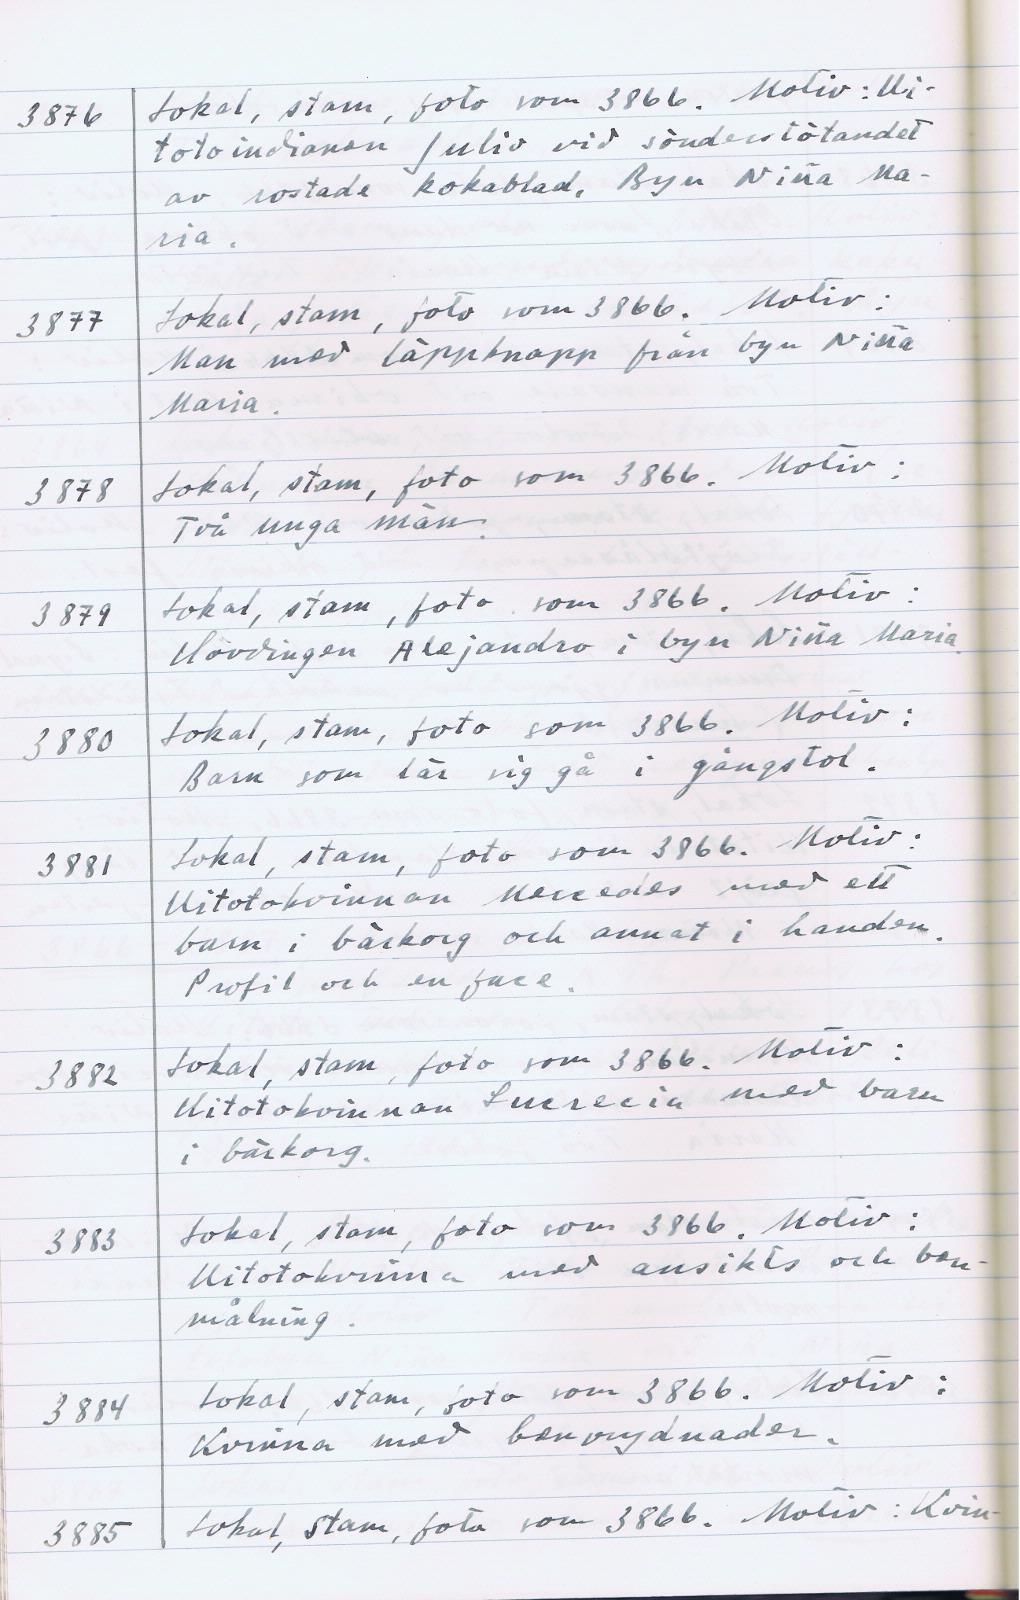 3876 Lokal, stam, foto som 3866. Motiv: Ui-
totoindianen Julio vid sönderstötandet
av rostade kokablad. Byn Niña Ma-
ria.
3877 Lokal, stam, foto som 3866. Motiv:
Man med läppknapp från byn Niña
Maria.
3878 Lokal, stam, foto som 3866. Motiv:
Två unga män.
3879 Lokal, stam, foto som 3866. Motiv:
Hövdingen Alejandro i byn Niña Maria.
3880 Lokal, stam, foto som 3866. Motiv:
Barn som lär sig gå i gångstol.
3881 Lokal, stam, foto som 3866. Motiv:
Uitotokvinnan Mercedes med ett
barn i bärkorg och annat i handen.
Profil och en face.
3882 Lokal, stam, foto som 3866. Motiv:
Uitotokvinnan Lucrecia med barn
i bärkorg.
3883 Lokal, stam, foto som 3866. Motiv:
Uitotokvinna med ansikts och ben-
målning.
3884 Lokal, stam, foto som 3866. Motiv:
Kvinna med benprydnader.
3885 Lokal, stam, foto som 3866. Motiv: Kvin-